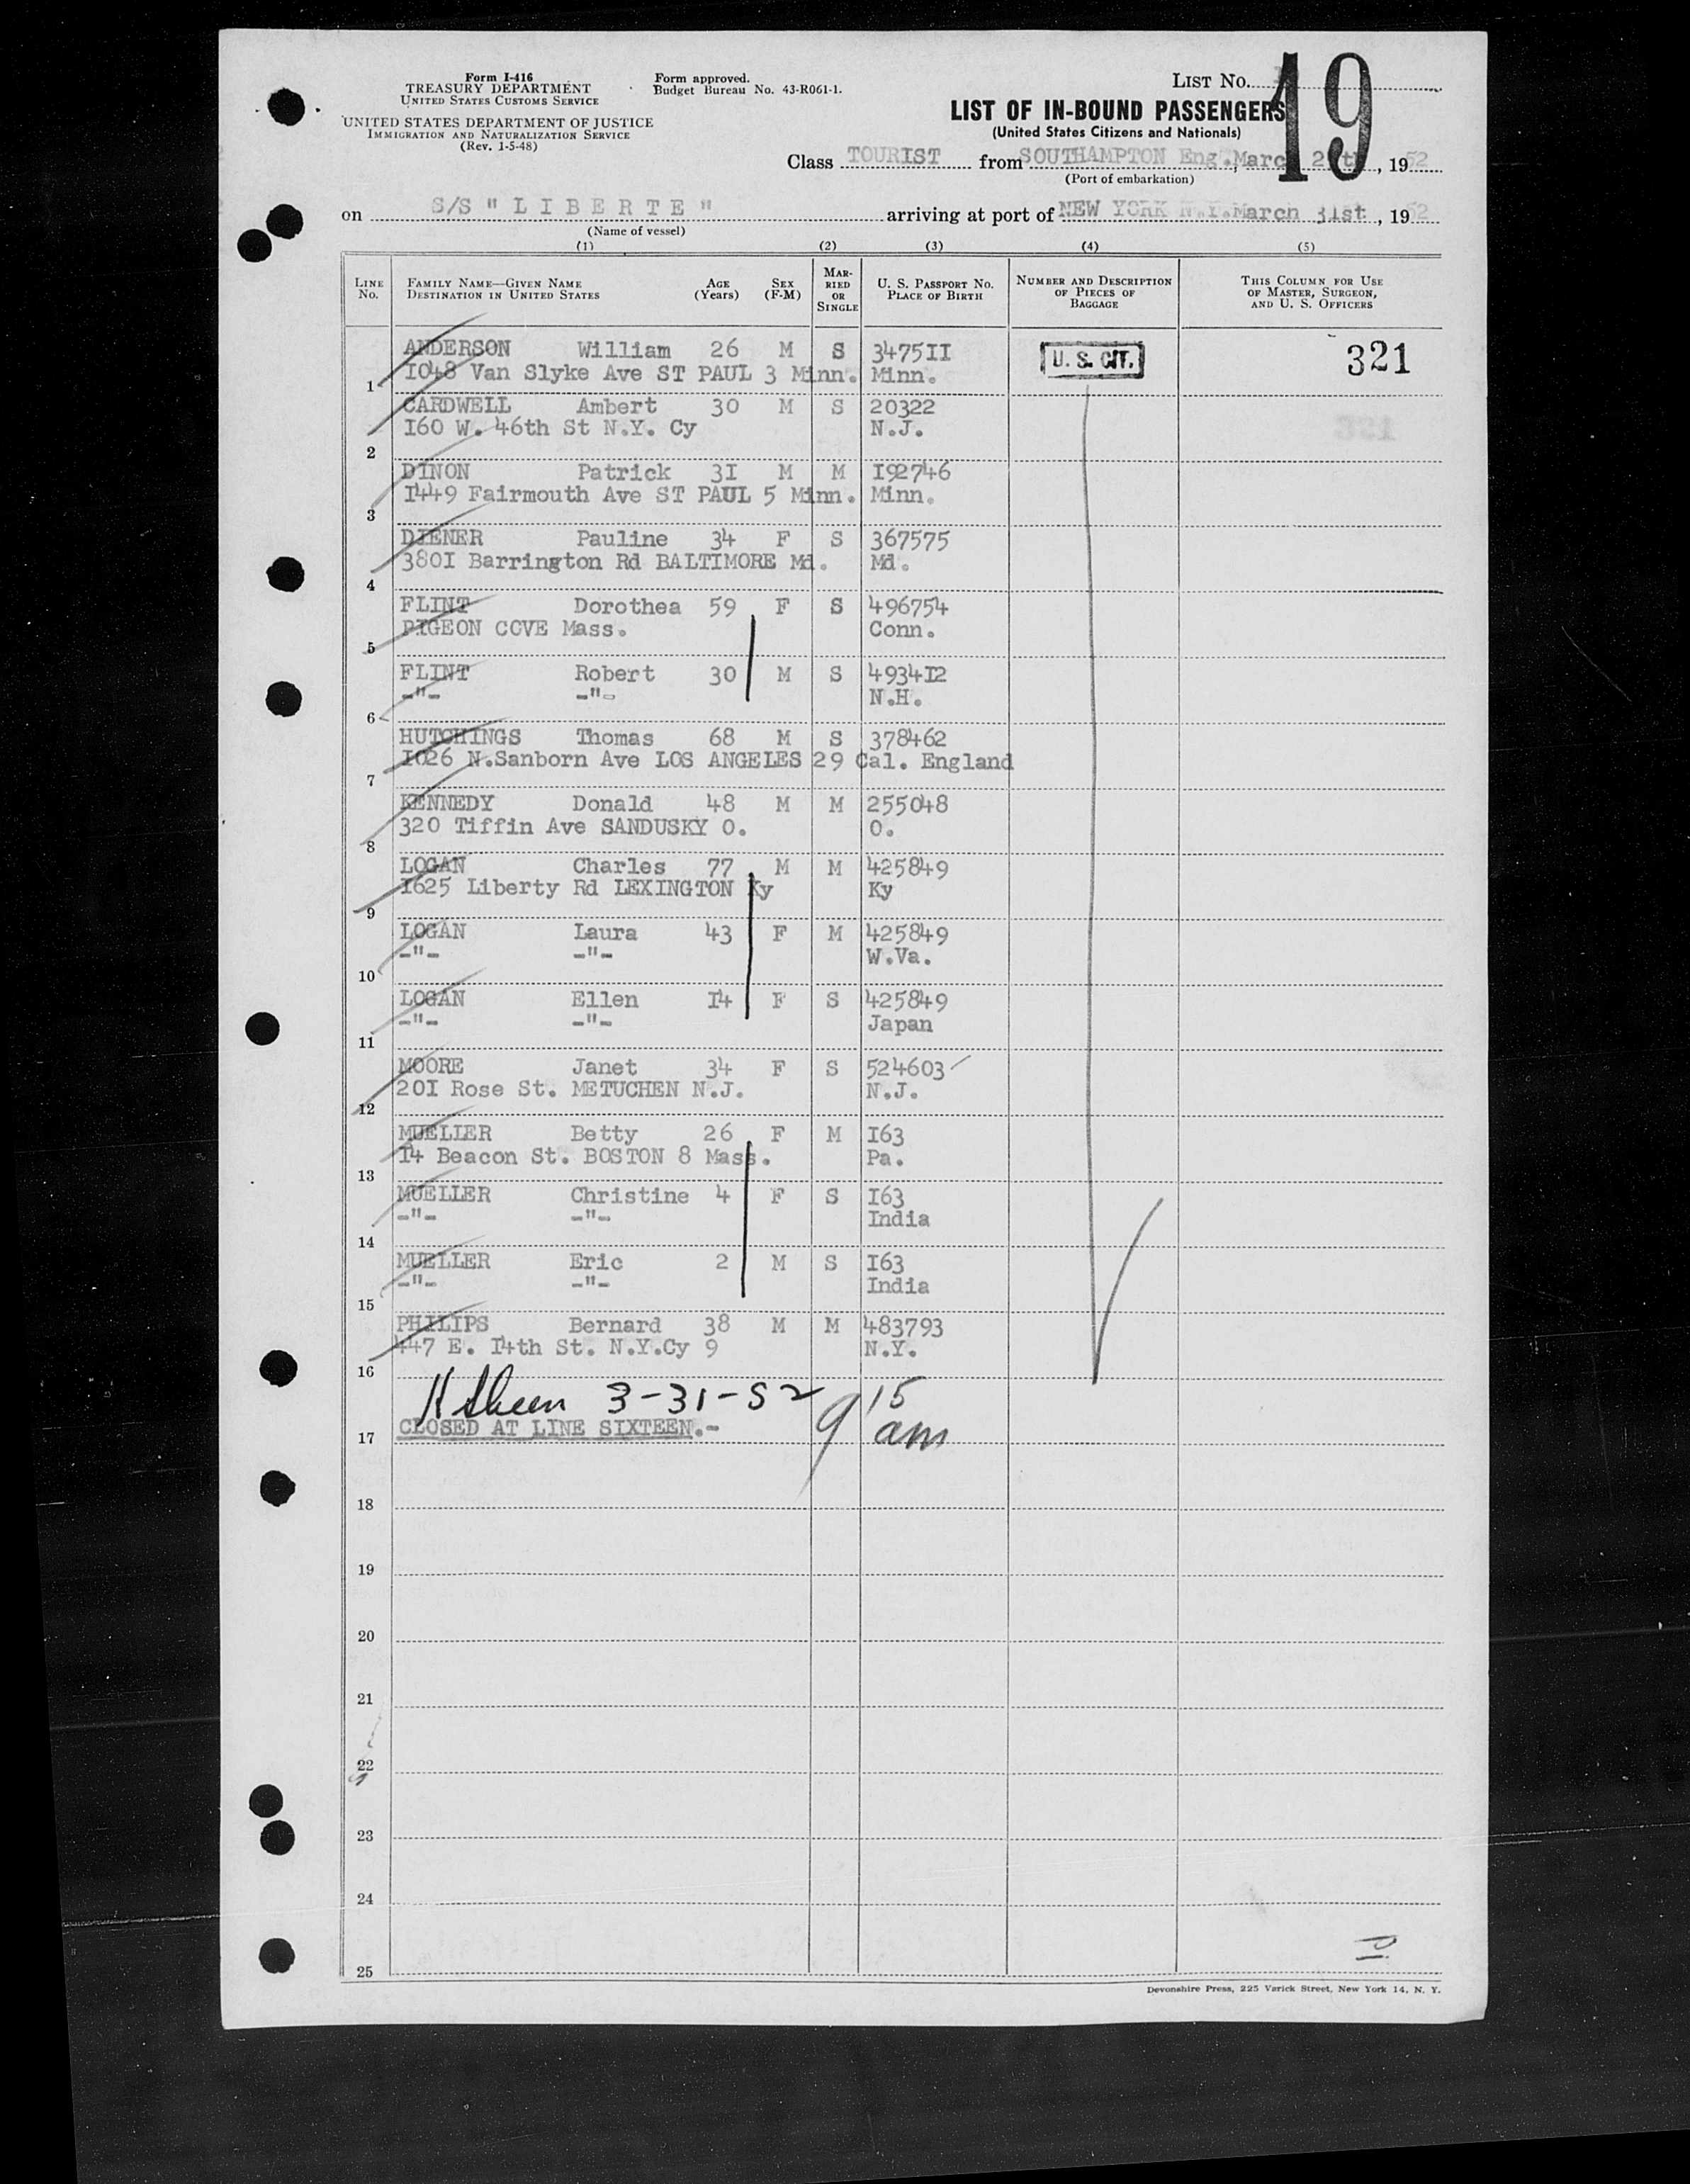 Form I-416
TREASURY DEPARTMENT
UNITED STATES CUSTOMS SERVICE
UNITED STATES DEPARTMENT OF JUSTICE
IMMIGRATION AND NATURALIZATION SERVICE
(Rev. 1-5-48)
Form approved.
Budget Bureau No. 43-R061-1.
LIST No. 19
LIST OF IN-BOUND PASSENGERS
(United States Citizens and Nationals)
Class TOURIST from SOUTHAMPTON Eng., 1952
(Port of embarkation)
on S/S "LIBERTE" arriving at port of NEW YORK N.Y. March 31st, 1952
(Name of vessel)
(1) (2) (3) (4) (5)
LINE No. FAMILY NAME—GIVEN NAME DESTINATION IN UNITED STATES AGE (Years) SEX (F-M) MARRIED OR SINGLE U. S. PASSPORT No. PLACE OF BIRTH NUMBER AND DESCRIPTION OF PIECES OF BAGGAGE THIS COLUMN FOR USE OF MASTER, SURGEON, AND U. S. OFFICERS
ANDERSON William 26 M S 3475II U. S. CIT. 321
1 I048 Van Slyke Ave ST PAUL 3 Minn. Minn.
CARDWELL Ambert 30 M S 20322
2 I60 W. 46th St N.Y. Cy N.J.
DINON Patrick 3I M M I92746
3 I449 Fairmouth Ave ST PAUL 5 Minn. Minn.
DIENER Pauline 34 F S 367575
4 380I Barrington Rd BALTIMORE Md. Md.
FLINT Dorothea 59 F S 496754
5 PIGEON CCVE Mass. Conn.
FLINT Robert 30 M S 4934I2
6 -"- -"- N.H.
HUTCHINGS Thomas 68 M S 378462
7 I026 N.Sanborn Ave LOS ANGELES 29 Cal. England
KENNEDY Donald 48 M M 255048
8 320 Tiffin Ave SANDUSKY O. O.
LOGAN Charles 77 M M 425849
9 I625 Liberty Rd LEXINGTON Ky Ky
LOGAN Laura 43 F M 425849
10 -"- -"- W.Va.
LOGAN Ellen I4 F S 425849
11 -"- -"- Japan
MOORE Janet 34 F S 524603
12 20I Rose St. METUCHEN N.J. N.J.
MUELLER Betty 26 F M I63
13 I4 Beacon St. BOSTON 8 Mass. Pa.
MUELLER Christine 4 F S I63
14 -"- -"- India
MUELLER Eric 2 M S I63
15 -"- -"- India
PHILIPS Bernard 38 M M 483793
16 447 E. I4th St. N.Y.Cy 9 N.Y.
3-31-52 9 15 am
17 CLOSED AT LINE SIXTEEN.-
18
19
20
21
22
23
24
25
Devonshire Press, 225 Varick Street, New York 14, N. Y.